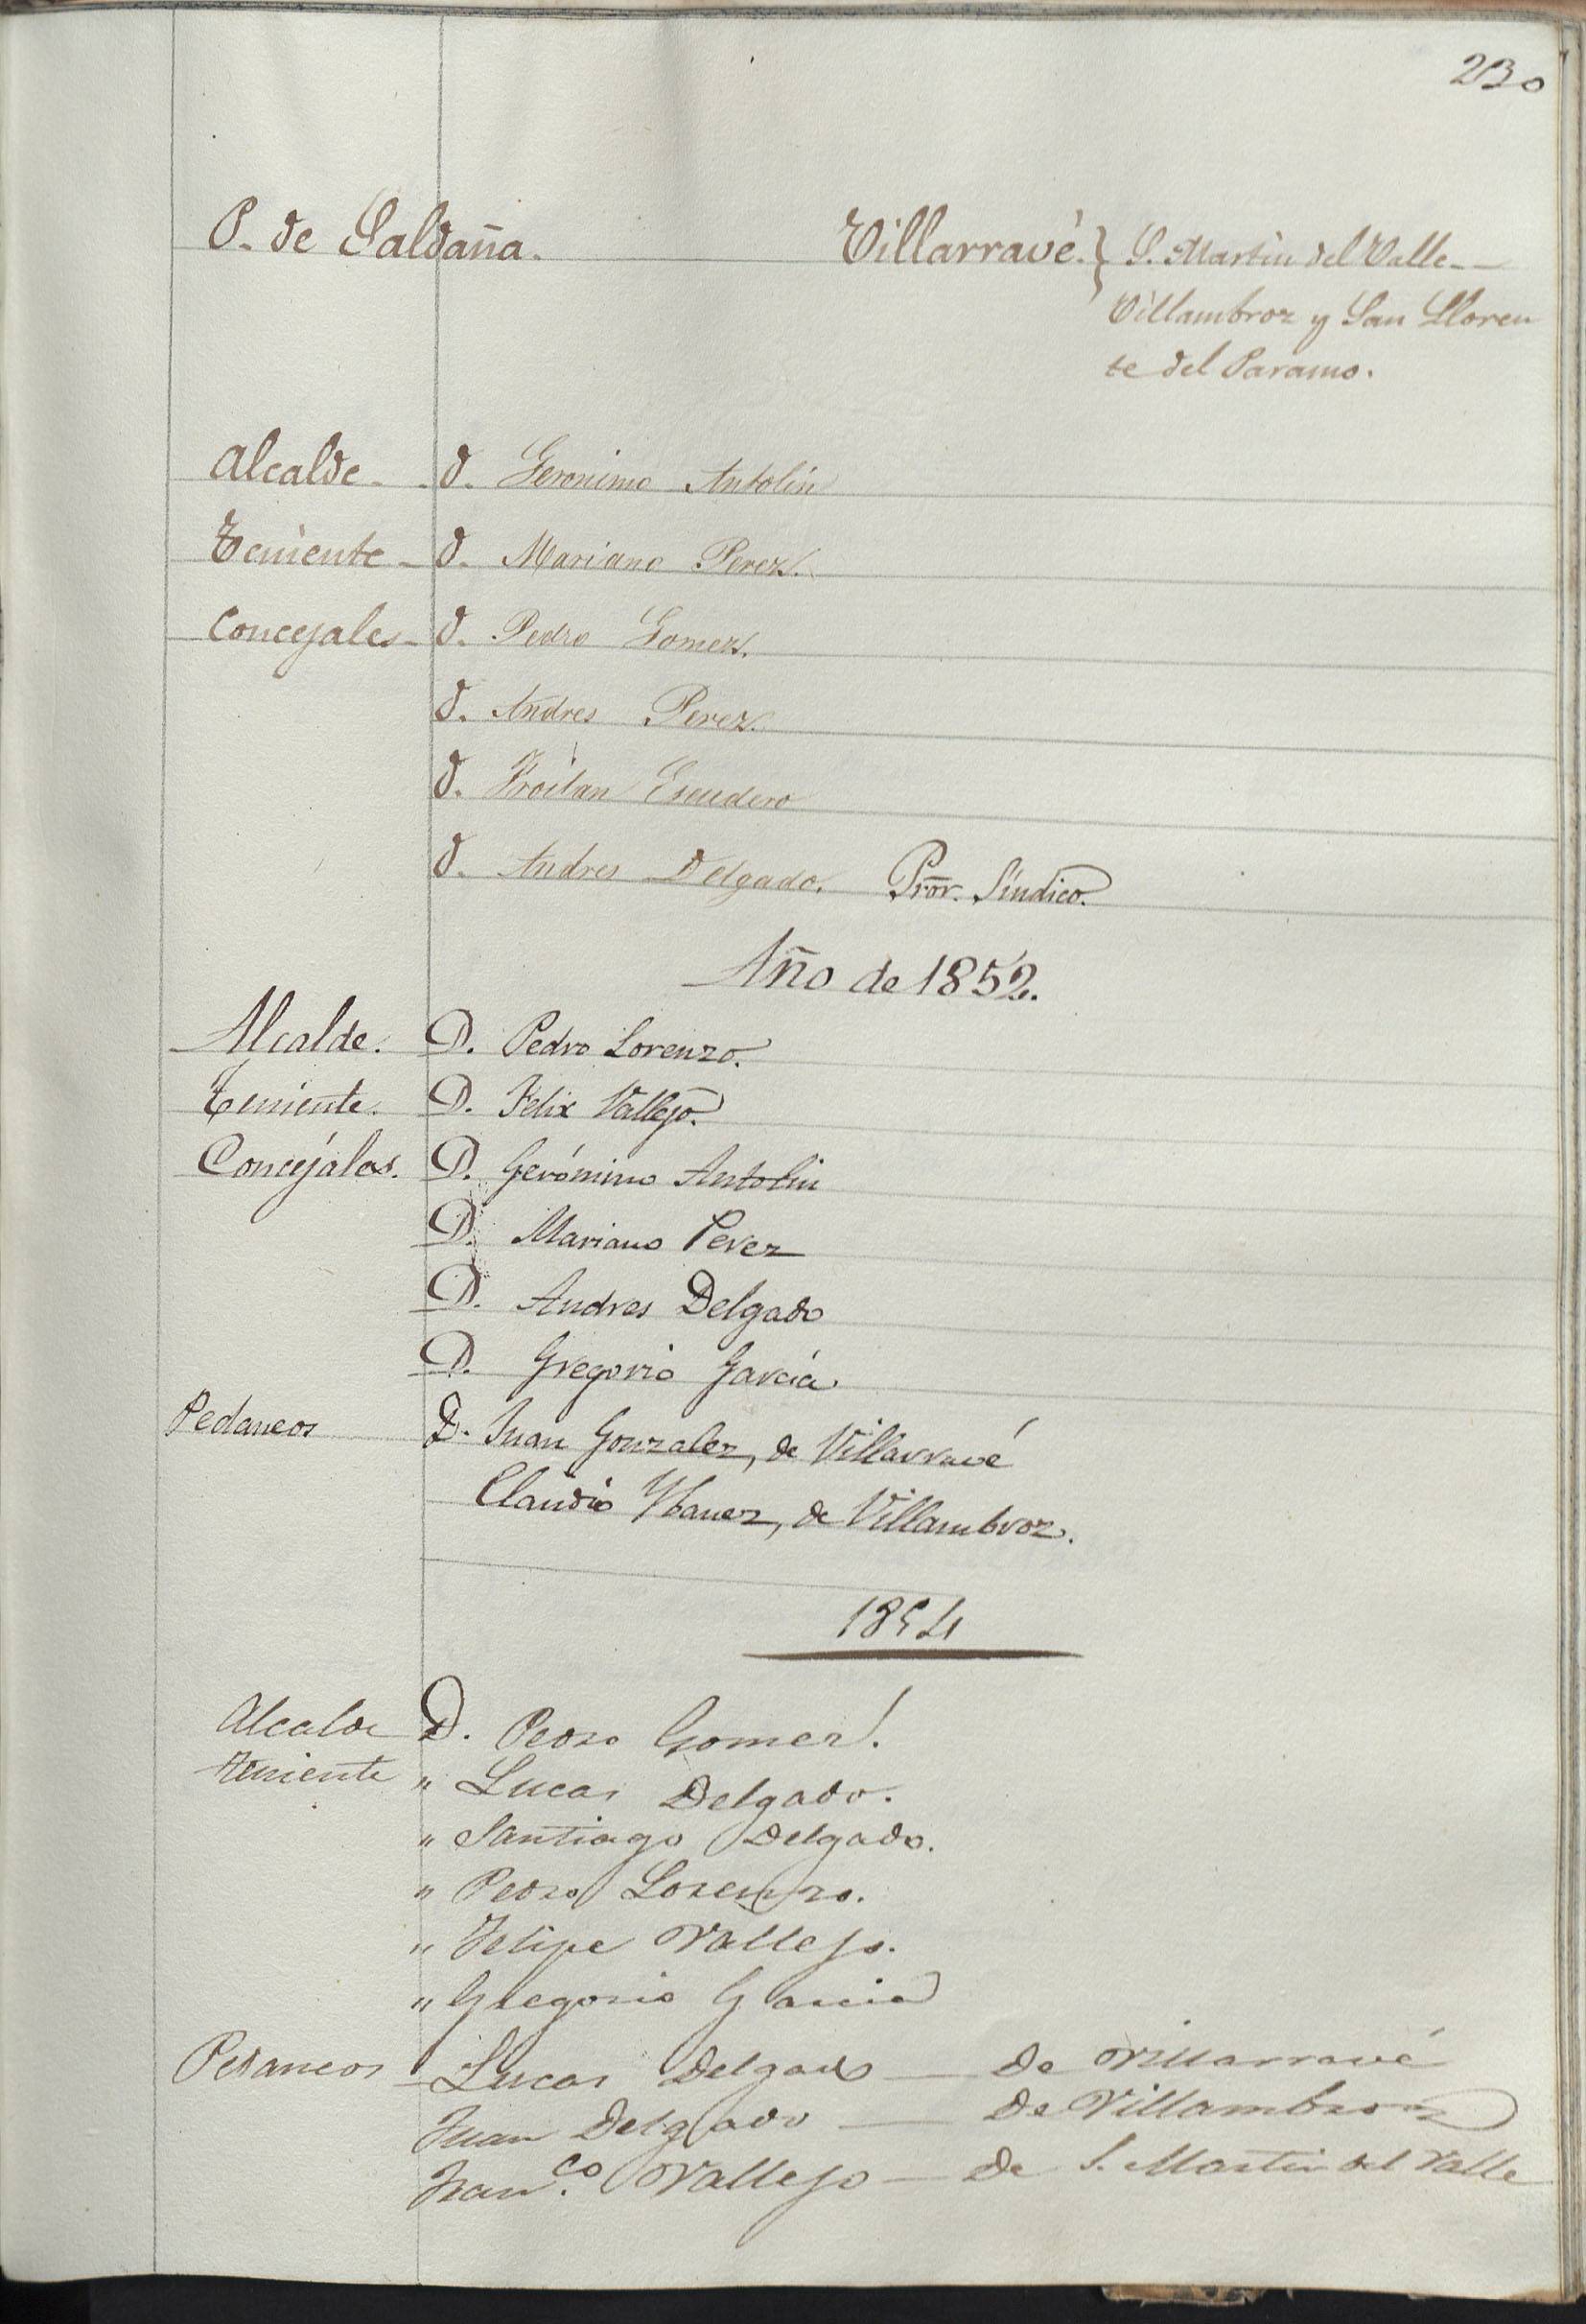 230
P. de Saldaña. Villarravé. } S. Martin del Valle
Villambroz y San Lloren
te del Paramo.
Alcalde - D. Geronimo Antolin
Teniente - D. Mariano Perez.
Concejales - D. Pedro Gomez.
D. Andres Perez.
D. Froilan Escudero
D. Andres Delgado. Pror. Síndico.
Año de 1852.
Alcalde. D. Pedro Lorenzo.
Teniente. D. Felix Vallejo.
Concejales. D. Gerónimo Antolin
D. Mariano Perez
D. Andres Delgado
D. Gregorio García
Pedaneos D. Juan Gonzalez, de Villarravé
Claudio Ybanez, de Villambroz.
1854
Alcalde D. Pedro Gomez.
teniente " Lucas Delgado.
" Santiago Delgado.
" Pedro Lorenzo.
" Felipe Vallejo.
" Gregorio Garcia
Pedaneos Lucas Delgado — de Villarravé
Juan Delgado — de Villambroz
Fran.co Vallejo — de S. Martin del Valle